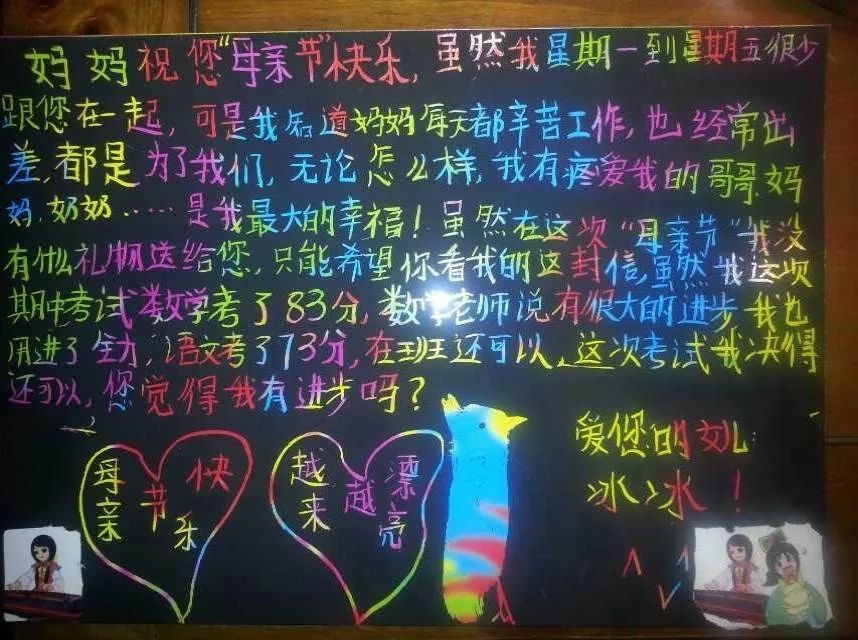 妈妈祝您“母亲节”快乐,虽然我星期一到星期五很少
跟您在一起,可是我知道妈妈每天都辛苦工作,也经常出
差,都是为了我们,无论怎么样,我有疼爱我的哥哥、妈
妈、奶奶……是我最大的幸福!虽然在这次“母亲节”我没
有什么礼物送给您,只能希望你看我的这封信,虽然我这次
期中考试数学考了83分,数学老师说有很大的进步,我也
用进了全力,语文考了73分,在班还可以,这次考试我决得
还可以,您觉得我有进步吗?
母亲节快乐
越来越漂亮
爱您的女儿
冰冰!